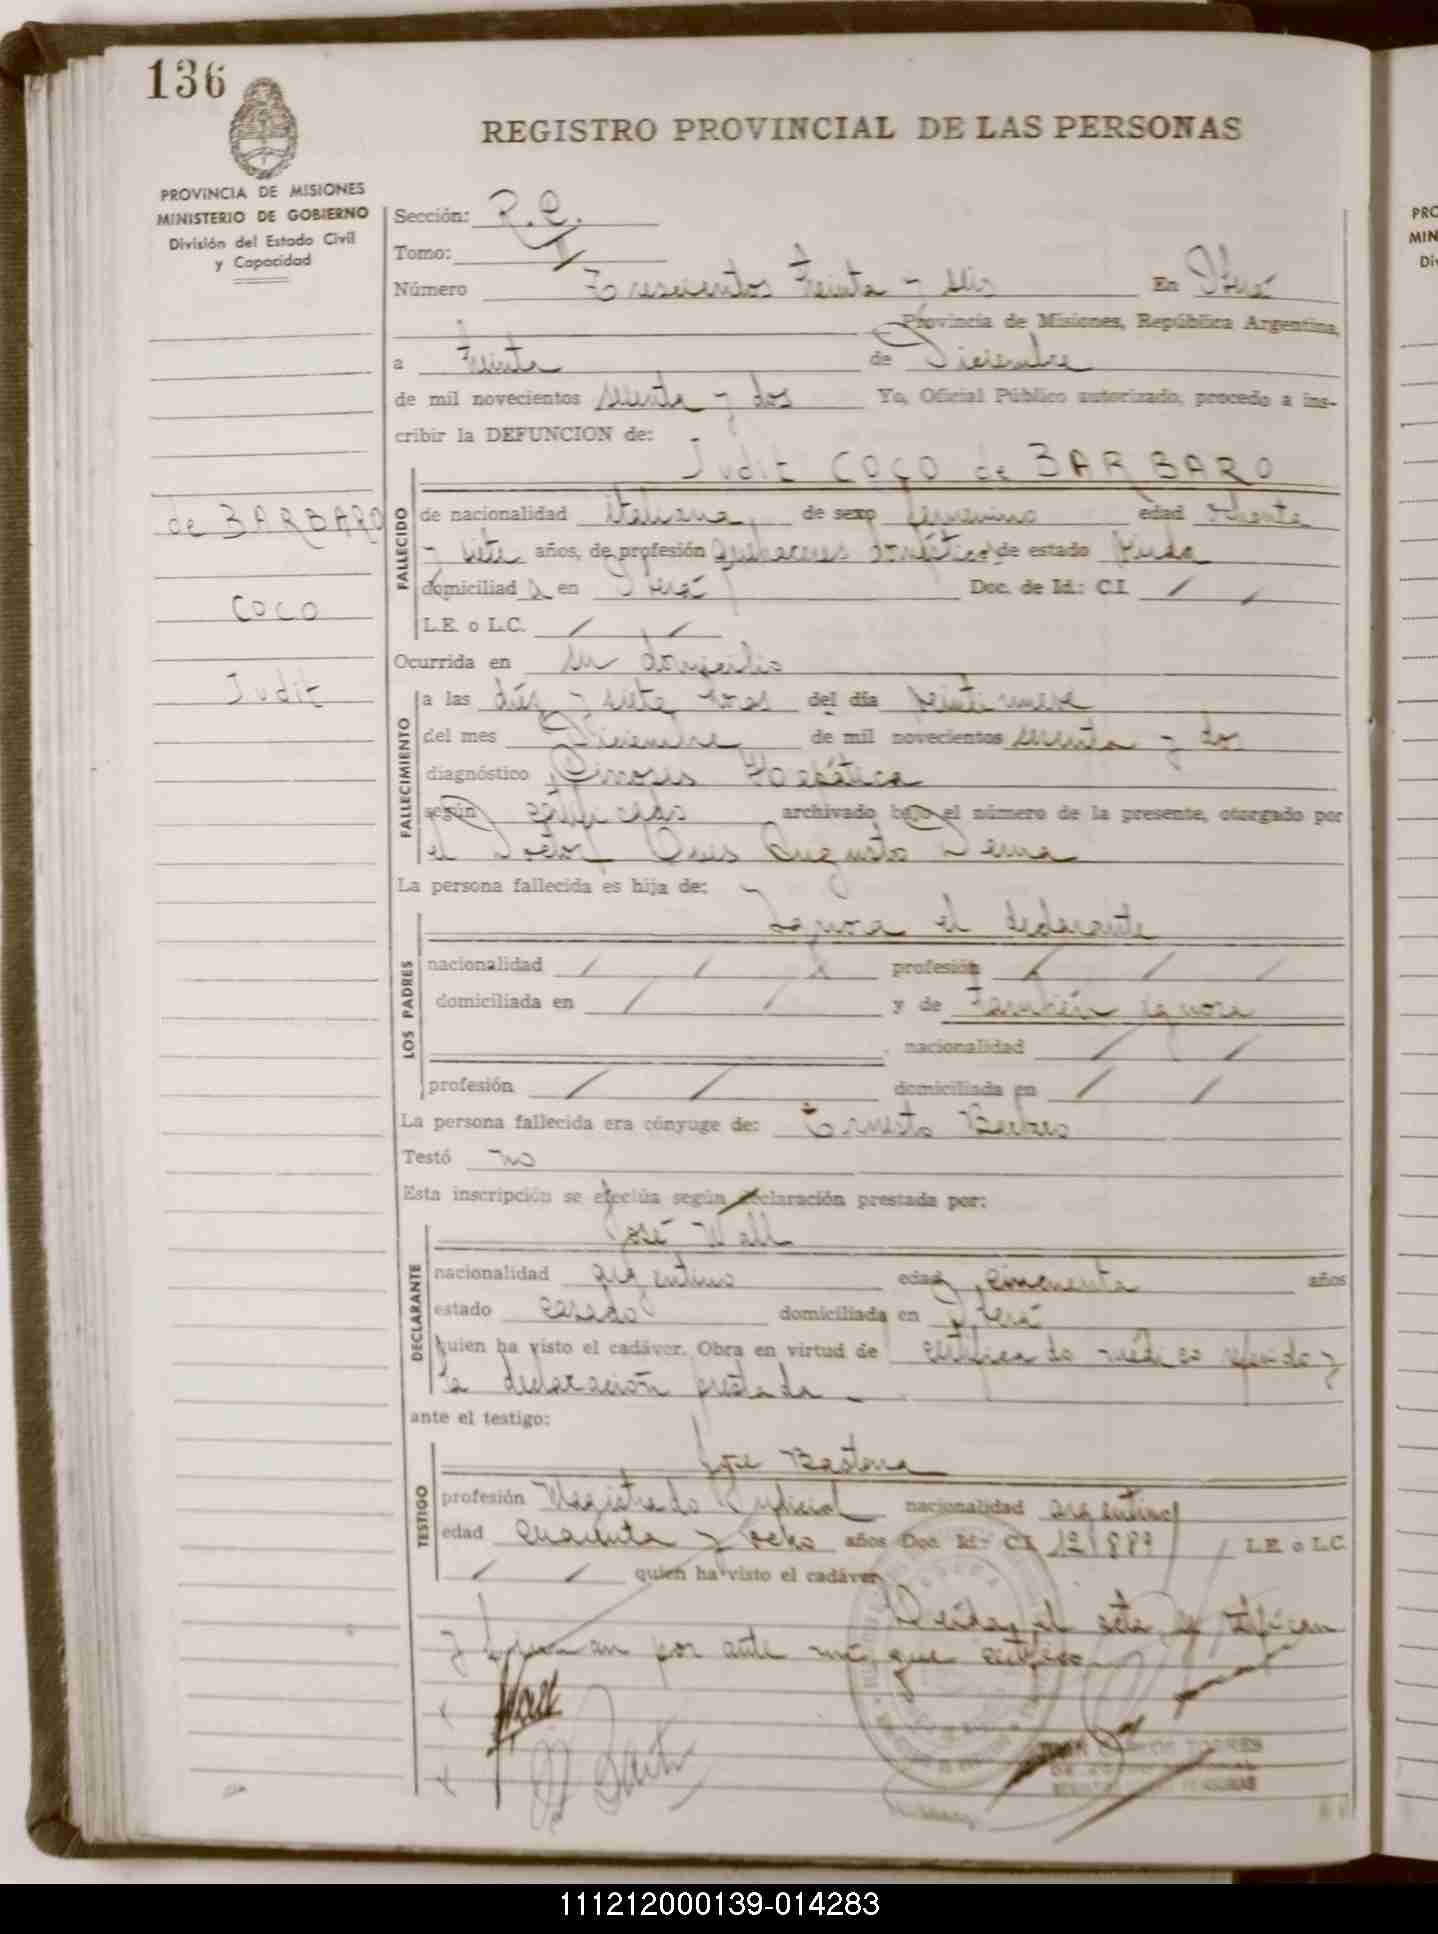 136
REGISTRO PROVINCIAL DE LAS PERSONAS
PROVINCIA DE MISIONES
MINISTERIO DE GOBIERNO
División del Estado Civil
y Capacidad
Sección: R.C.
Tomo: II
Número Trescientos treinta y seis En Oberá
Provincia de Misiones, República Argentina,
a treinta de Diciembre
de mil novecientos setenta y dos Yo, Oficial Público autorizado, procedo a ins-
cribir la DEFUNCION de:
Judit COCO de BARBARO
de BARBARO
COCO
Judit
FALLECIDO
de nacionalidad italiana de sexo femenino edad ochenta
y siete años, de profesión quehaceres domésticos de estado viuda
domiciliad a en Oberá Doc. de Id.: C.I. / /
L.E. o L.C. / /
Ocurrida en su domicilio
FALLECIMIENTO
a las diez y siete horas del día veintinueve
del mes Diciembre de mil novecientos setenta y dos
diagnóstico Cirrosis Hepática
según certificado archivado bajo el número de la presente, otorgado por
el Doctor Luis Augusto
La persona fallecida es hija de:
Ignora el declarante
LOS PADRES
nacionalidad / / / profesión / / /
domiciliada en / / y de también ignora
nacionalidad / /
profesión / / domiciliada en / /
La persona fallecida era cónyuge de: Ernesto Barbaro
Testó no
Esta inscripción se efectúa según declaración prestada por:
José Wall
DECLARANTE
nacionalidad argentino edad cincuenta años
estado casado domiciliada en Oberá
quien ha visto el cadáver. Obra en virtud de certificado médico referido y
la declaración prestada
ante el testigo:
José
TESTIGO
profesión Magistrado Judicial nacionalidad argentino
edad cuarenta y ocho años Doc. Id.- C.I. L.E. o L.C.
/ / quien ha visto el cadáver
Leída el acta la ratifican
y firman por ante mí que certifico
TORRES
111212000139-014283